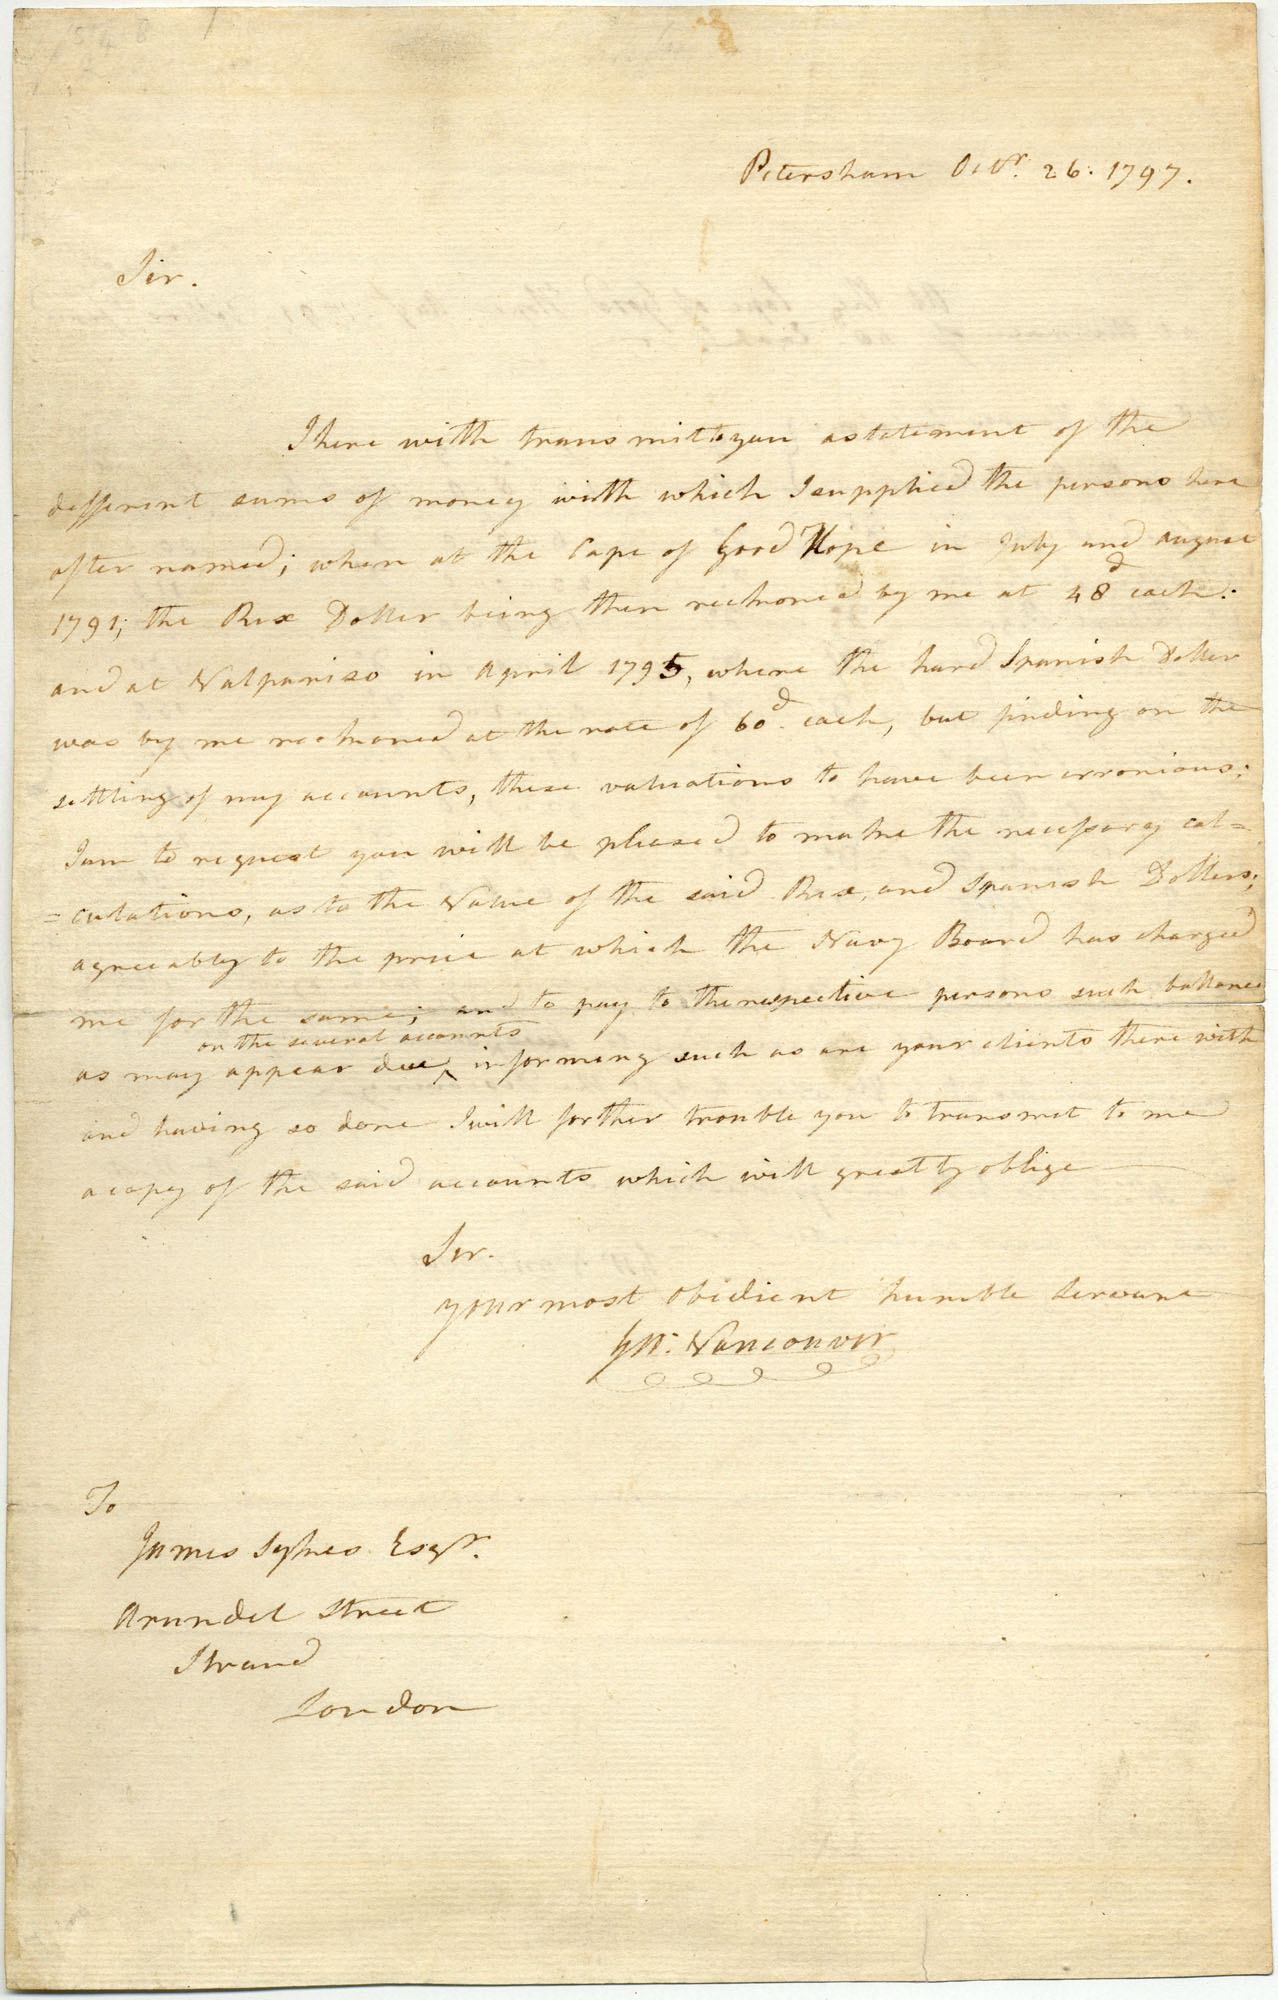 Petersham Octr. 26. 1797.
Sir.
I here with transmit to you a statement of the
different sums of money with which I supplied the persons here
after named; when at the Cape of Good Hope in July and August
1791; the Rix Doller being then reckoned by me at 48d each:
and at Valpariso in April 1795, where the hard Spanish Doller
was by me reckoned at the rate of 60d. each, but finding on the
settling of my accounts, these valuations to have been erronious:
I am to request you will be pleased to make the necessary cal=
=culations, as to the Value of the said Rix, and Spanish Dollers;
agreeably to the price at which the Navy Board has charged
me for the same; and to pay to the respective persons such ballance
on the several accounts
as may appear due, informing such as are your clients there with
and having so done I will forther trouble you to transmit to me
a copy of the said accounts which will greatly oblige
Sir.
your most obidient humble Servant
Geo. Vancouver
To
James Sykes Esqr.
Arundel Street
Strand
London